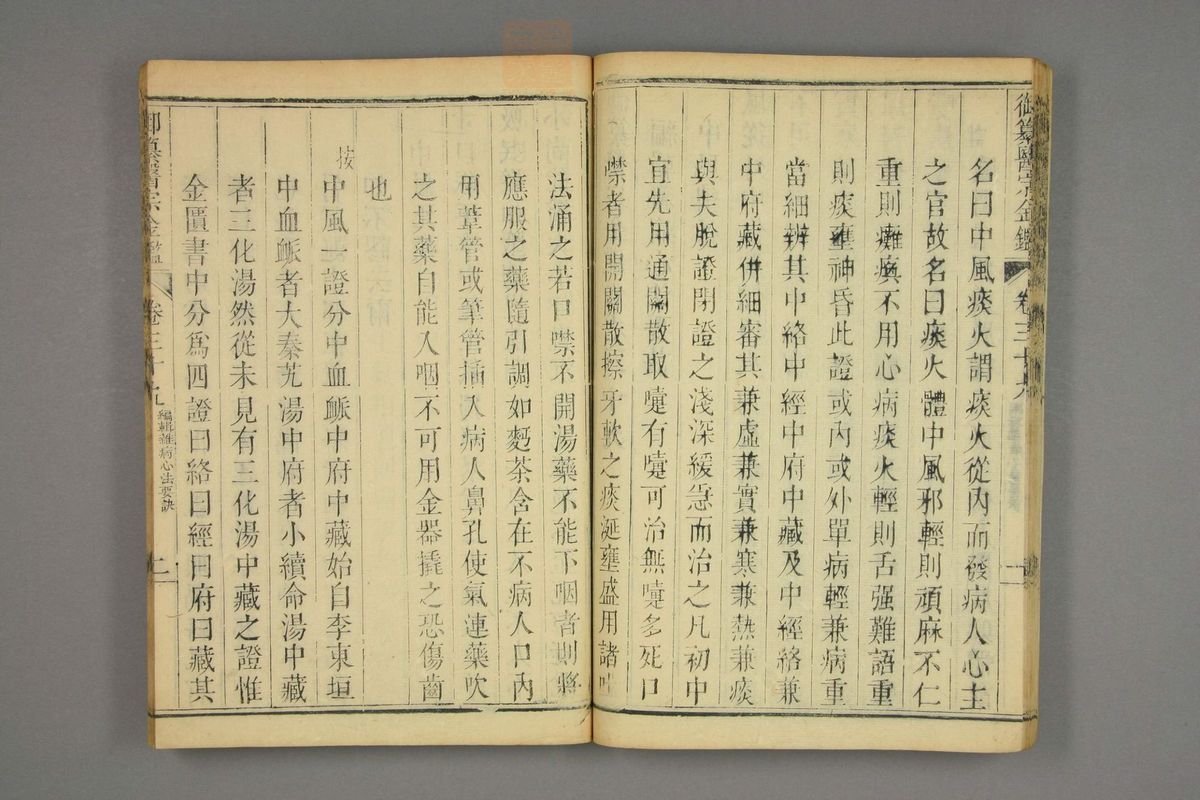 御纂醫宗金鑑 卷三十九
名曰中風痰火謂痰火從內而發病人心主
之官故名曰痰火體中風邪輕則頑麻不仁
重則癱瘓不用心病痰火輕則舌强難語重
則痰壅神昏此證或內或外單病輕兼病重
當細辨其中絡中經中府中藏及中經絡兼
中府藏併細審其兼虛兼實兼寒兼熱兼痰
與夫脫證閉證之淺深緩急而治之凡初中
宜先用通關散取嚏有嚏可治無嚏多死口
噤者用開關散擦牙軟之痰涎壅盛用諸吐
法涌之若口噤不開湯藥不能下咽者則將
應服之藥隨引調如麪茶含在不病人口內
用葦管或筆管插入病人鼻孔使氣連藥吹
之其藥自能入咽不可用金器撬之恐傷齒
也
按中風一證分中血脈中府中藏始自李東垣
中血脈者大秦艽湯中府者小續命湯中藏
者三化湯然從未見有三化湯中藏之證惟
金匱書中分爲四證曰絡曰經曰府曰藏其
御纂醫宗金鑑 卷三十九 編輯雜病心法要訣 二